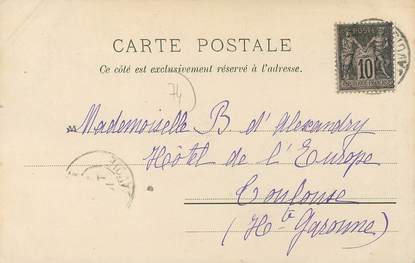 CARTE POSTALE
Ce côté est exclusivement réservé à l'adresse.
POSTES
10
74
Mademoiselle B. d'Alexandry
Hôtel de l'Europe
Toulouse
(Hte Garonne)